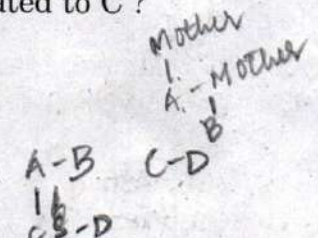 ated to C ?
Mother
A - Mother
B
A - B
C - D
- D